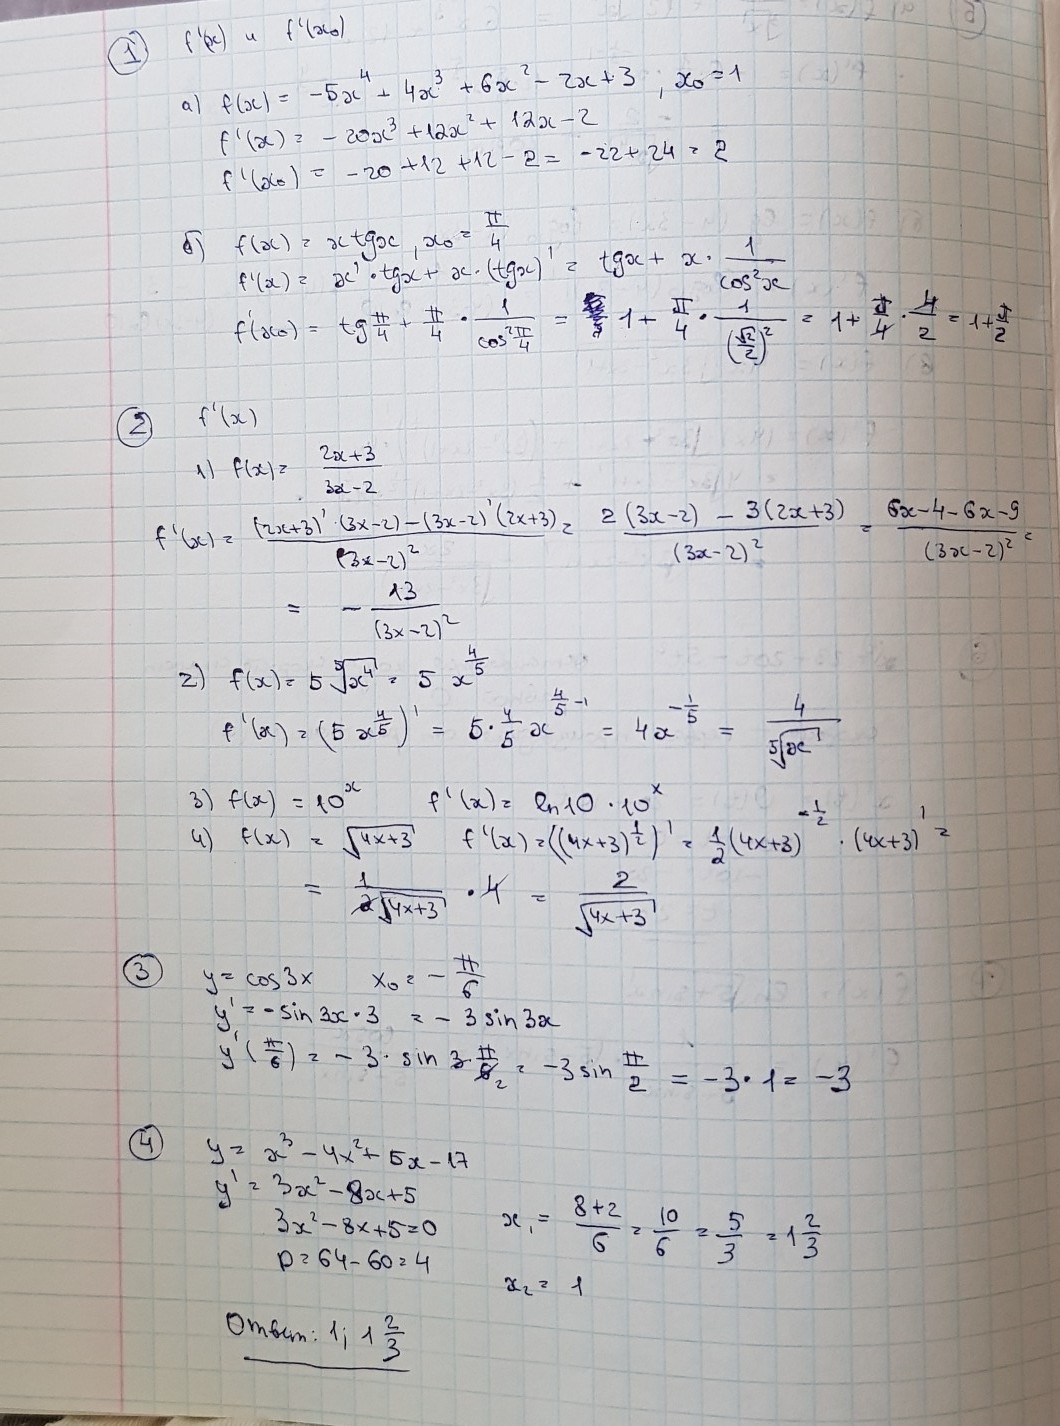 1 f'(x) и f'(x₀)
а) f(x) = -5x⁴ + 4x³ + 6x² - 2x + 3 , x₀ = 1
f'(x) = -20x³ + 12x² + 12x - 2
f'(x₀) = -20 + 12 + 12 - 2 = -22 + 24 = 2
б) f(x) = x tgx , x₀ = π/4
f'(x) = x' · tgx + x · (tgx)' = tgx + x · 1/cos²x
f'(x₀) = tg π/4 + π/4 · 1/cos² π/4 = 1 + π/4 · 1/(√2/2)² = 1 + π/4 · 4/2 = 1 + π/2
2 f'(x)
1) f(x) = (2x+3)/(3x-2)
f'(x) = ((2x+3)' · (3x-2) - (3x-2)' (2x+3))/(3x-2)² = (2(3x-2) - 3(2x+3))/(3x-2)² = (6x-4-6x-9)/(3x-2)² =
= - 13/(3x-2)²
2) f(x) = 5 ⁵√x⁴ = 5 x^(4/5)
f'(x) = (5 x^(4/5))' = 5 · 4/5 x^(4/5 - 1) = 4x^(-1/5) = 4/⁵√x
3) f(x) = 10ˣ f'(x) = ln10 · 10ˣ
4) f(x) = √(4x+3) f'(x) = ((4x+3)^(1/2))' = 1/2 (4x+3)^(-1/2) · (4x+3)' =
= 1/(2√(4x+3)) · 4 = 2/√(4x+3)
3 y = cos3x x₀ = - π/6
y' = -sin 3x · 3 = - 3 sin 3x
y'(π/6) = - 3 · sin 3 · π/6 2 = -3 sin π/2 = -3 · 1 = -3
4 y = x³ - 4x² + 5x - 17
y' = 3x² - 8x + 5
3x² - 8x + 5 = 0 x₁ = (8+2)/6 = 10/6 = 5/3 = 1 2/3
D = 64 - 60 = 4
x₂ = 1
Ответ: 1; 1 2/3